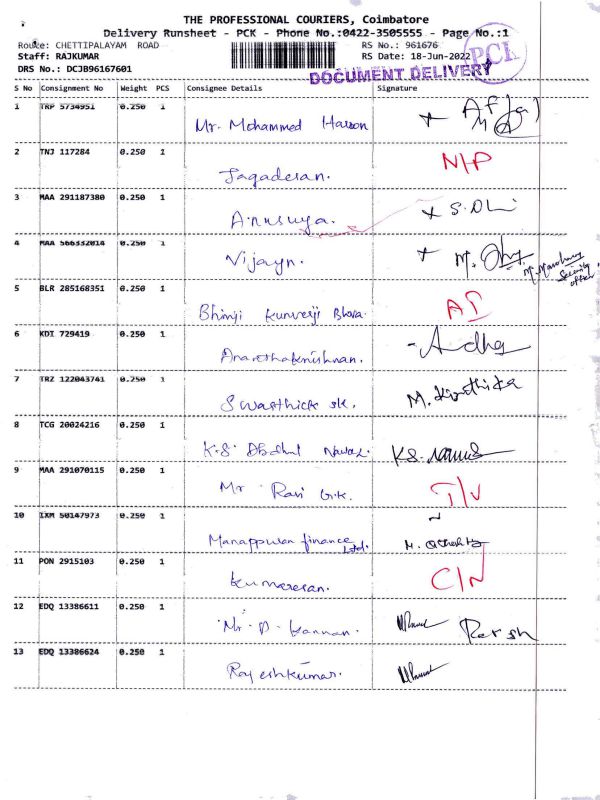 THE PROFESSIONAL COURIERS, Coimbatore
Delivery Runsheet - PCK - Phone No.:0422-3505555 - Page No.:1
Route: CHETTIPALAYAM ROAD RS No.: 961676
Staff: RAJKUMAR RS Date: 18-Jun-2022
DRS No.: DCJB96167601
PCK
DOCUMENT DELIVERY
S No Consignment No Weight PCS Consignee Details Signature
1 TRP 5734951 0.250 1
Mr. Mohammed Hasson
2 TNJ 117284 0.250 1 N/P
Jagadesan.
3 MAA 291187380 0.250 1
Anusuya.
4 MAA 566332014 0.250 1
Vijayn.
Security
5 BLR 285168351 0.250 1
Bhimji Kunverji Bhora.
6 KDI 729419 0.250 1
Ananthakrishnan.
7 TRZ 122043741 0.250 1 M. Kiruthika
Swasthick sk.
8 TCG 20024216 0.250 1
K.S. Abdhul Nawaz.
9 MAA 291070115 0.250 1
Mr Ravi G.K.
10 IXM 50147973 0.250 1
Manappuran finance Ltd.
11 PON 2915103 0.250 1 C/N
Kumaresan.
12 EDQ 13386611 0.250 1
Mr. D. Kannan.
13 EDQ 13386624 0.250 1
Rajeshkumar.